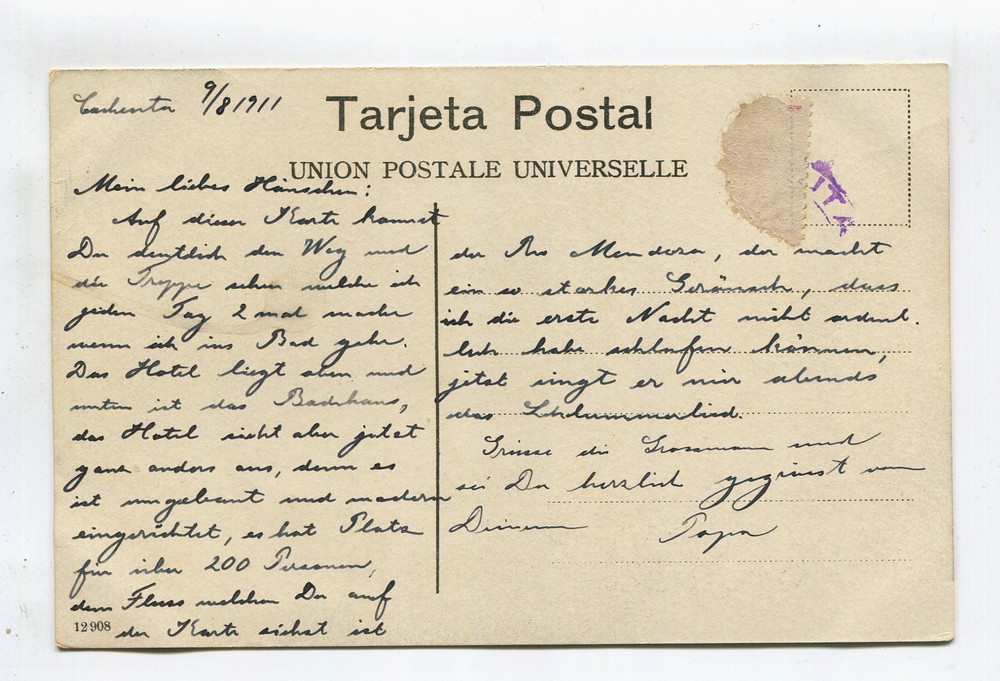 Cacheuta 9/8 1911
Tarjeta Postal
UNION POSTALE UNIVERSELLE
Mein liebes Hänschen:
Auf dieser Karte kannst
Du deutlich den Weg und
die Treppe sehen welche ich
jeden Tag 2 mal mache
wenn ich ins Bad gehe.
Das Hotel liegt oben und
unten ist das Badehaus,
das Hotel sieht aber jetzt
ganz anders aus, denn es
ist umgebaut und modern
eingerichtet, es hat Platz
für über 200 Personen,
dem Fluss welchen Du auf
der Karte siehst ist
12908
der Rio Mendoza, der macht
ein so starkes Geräusch, dass
ich die erste Nacht nicht ordent.
lich habe schlafen können,
jetzt singt er mir abends
das Schlummerlied.
Grüsse die Grossmama und
sei Du herzlich gegrüsst von
Deinem Papa